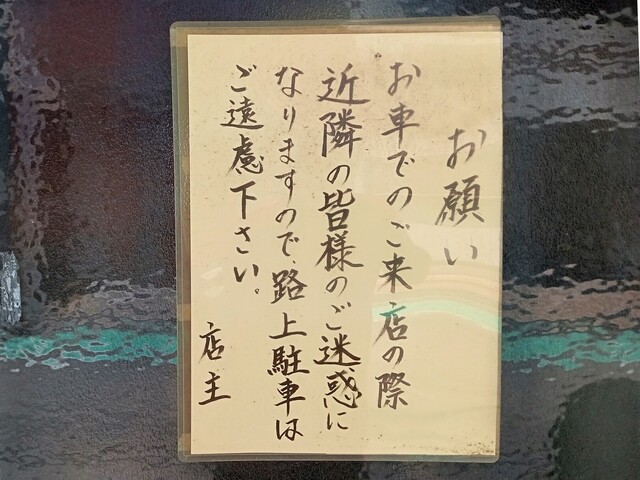 お願い
お車でのご来店の際
近隣の皆様のご迷惑に
なりますので、路上駐車は
ご遠慮下さい。
店主